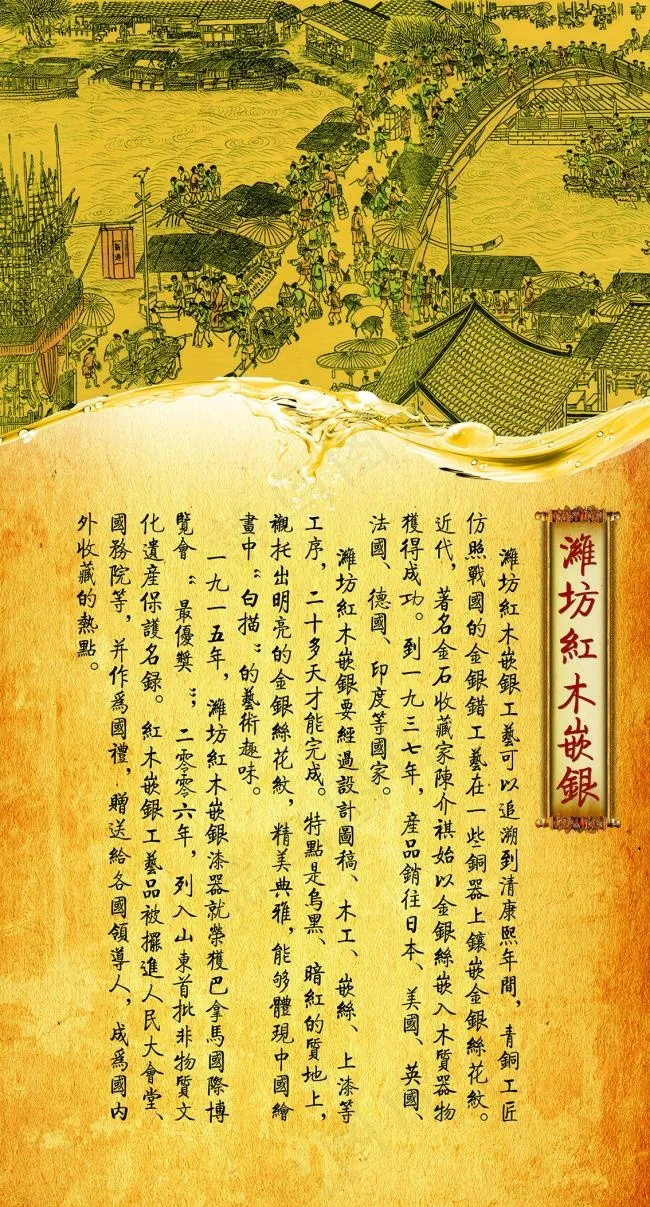 濰坊紅木嵌銀
濰坊紅木嵌銀工藝可以追溯到清康熙年間，青銅工匠
仿照戰國的金銀錯工藝在一些銅器上鑲嵌金銀絲花紋。
近代，著名金石收藏家陳介祺始以金銀絲嵌入木質器物
獲得成功。到一九三七年，産品銷往日本、美國、英國、
法國、德國、印度等國家。
濰坊紅木嵌銀要經過設計圖稿、木工、嵌絲、上漆等
工序，二十多天才能完成。特點是烏黑、暗紅的質地上，
襯托出明亮的金銀絲花紋，精美典雅，能够體現中國繪
畫中“白描”的藝術趣味。
一九一五年，濰坊紅木嵌銀漆器就榮獲巴拿馬國際博
覽會“最優獎”；二零零六年，列入山東首批非物質文
化遺産保護名録。紅木嵌銀工藝品被擺進人民大會堂、
國務院等，并作爲國禮，贈送給各國領導人，成爲國内
外收藏的熱點。